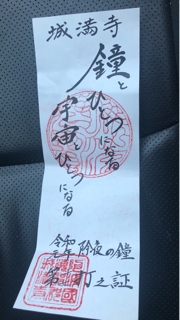 城満寺
鐘と
ひとつになる
宇宙と
ひとつ
になる
令和元年
除夜の鐘
第 打之証